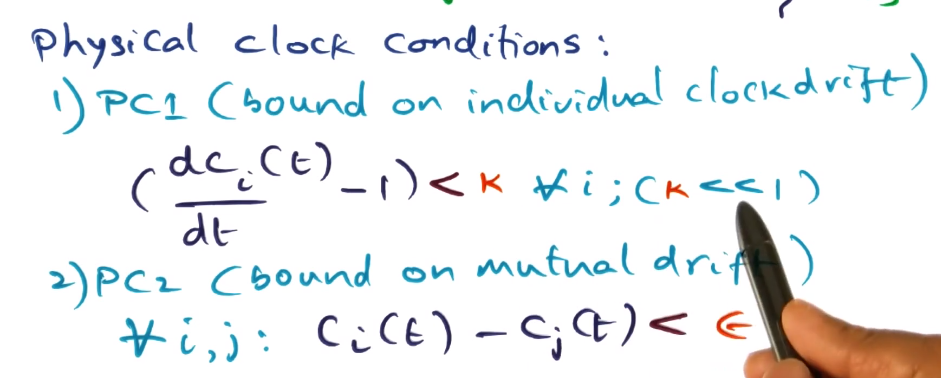 Physical clock conditions:
1) PC1 (bound on individual clock drift)
(dCᵢ(t)/dt - 1) < K ∀i; (K << 1)
2) PC2 (bound on mutual drift)
∀i,j: Cᵢ(t) - Cⱼ(t) < ϵ